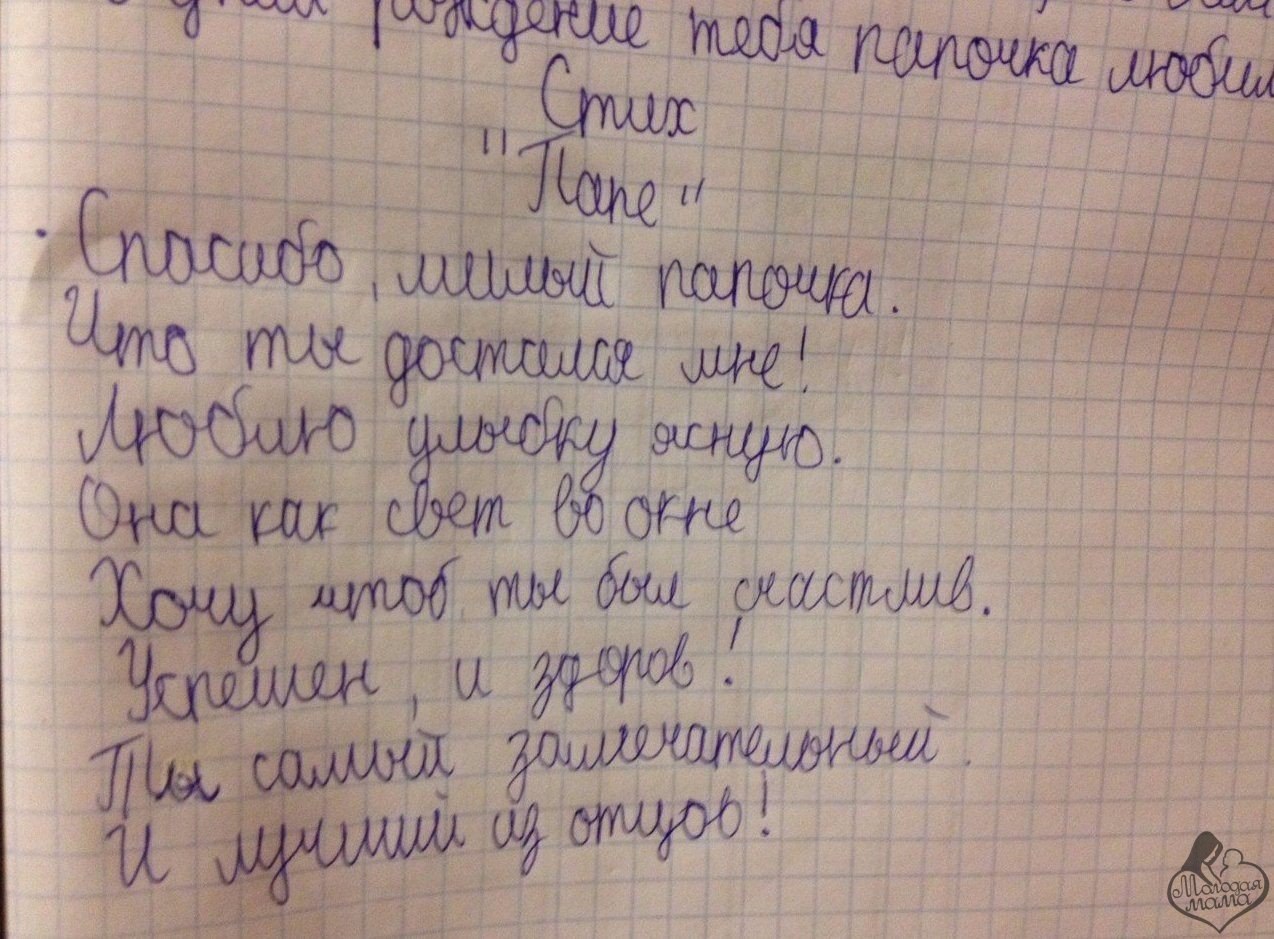 днём рождение тебя папочка любим
Стих
"Папе"
Спасибо, милый папочка.
Что ты достался мне!
Люблю улыбку ясную.
Она как свет во окне
Хочу чтоб ты был счастлив.
Успешен, и здоров!
Ты самый замечательный.
И лучший из отцов!
Молодая
мама